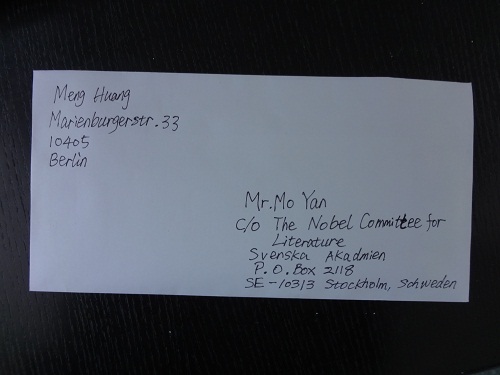 Meng Huang
Marienburgerstr. 33
10405
Berlin
Mr. Mo Yan
C/o The Nobel Committee for
Literature
Svenska Akadmien
P.O. Box 2118
SE-10313 Stockholm, Schweden